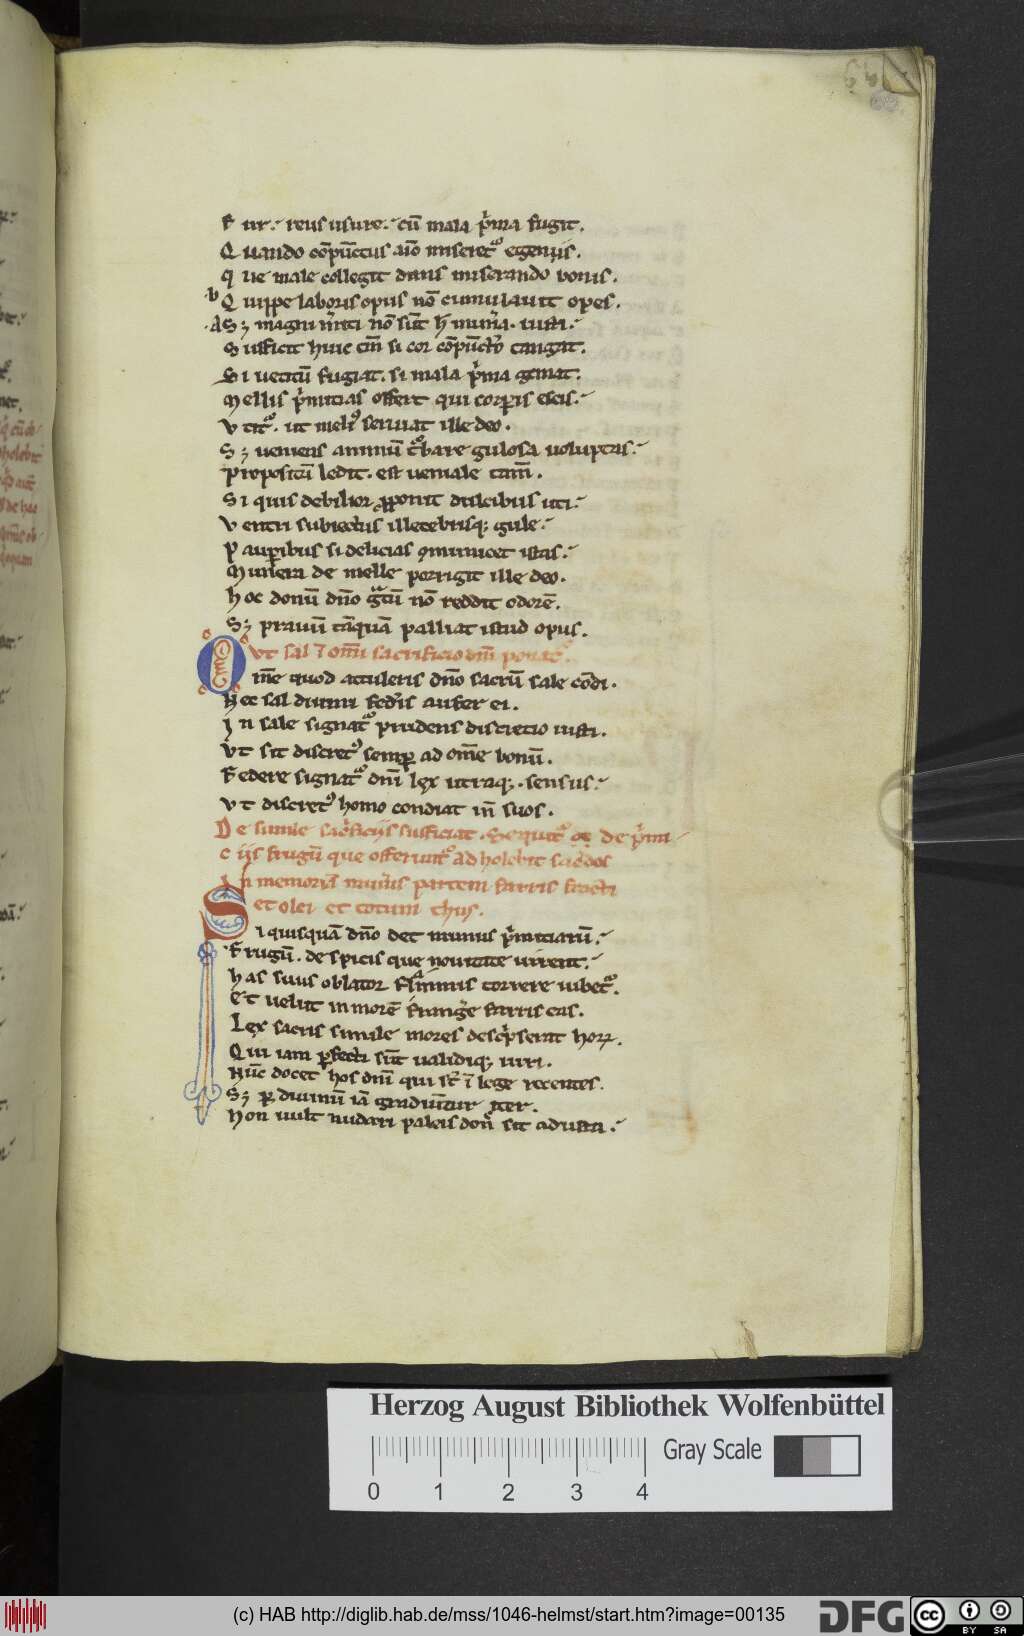 F ur. reus usure. cū mala p̄ma fugit.
Q uando cōpūctus aīo miseret᷒ egenis.
q ue male collegit dans miserando bonis.
b Q uippe laboris opus nō cumulauit opes.
a Sꝫ magni m̄iti nō sūt h̄ mun̄a. iusti.
S ufficit huic tn̄ si cor cōpūctio tangat.
Si uetitū fugiat. si mala p̄ma gemat.
Mellis p̄mitias offert qui corꝑis escis.
V tit᷒. ut meli᷒ seruat ille deo.
Sꝫ ueniens animū t᷒bare gulosa uoluptas.
Propositū ledit. est ueniale tam̄.
Si quis debilior ꝓponit dulcibus uti.
V entri subiectus illecebrisqꝫ gule.
P auꝑibus si delicias ꝯmunicet istas.
Munera de melle porrigit ille deo.
h oc donū dn̄o gͣtū nō reddit odorē.
Sꝫ prauū tāquā palliat istud opus.
Vt sal ī omī sacrificio dn̄i ponat᷒.
Om̄e quod attuleris dn̄o sacrū sale cōdi.
Nec sal diuini fed̄is aufer ei.
I n sale signat᷒ prudens discretio iusti.
Vt sit discret᷒ semꝑ ad om̄e bonū.
Federe signat᷒ dn̄i lex utraqꝫ. sensus.
Vt discret᷒ homo condiat in̄ suos.
De simile sac̄ficiis sufficiat. Sequit᷒ de p̄mi
c iis frugū que offerunt᷒ ad holebit sac̄dos
In memoriā mun̄is partem farris fracti
et olei et totum thus.
S i quisquā dn̄o det munus p̄mitiarū.
Frugū. de spicis que nouitate uirent.
has suus oblator flāmis torrere iubet᷒.
Et uelut in morē franḡe farris eas.
Lex sacris simile mores descp̄serat horꝝ.
Qui iam ꝑfecti sūt ualidiqꝫ uiri.
Nūc docet hos dn̄i qui st̄ ī lege recentes.
Sꝫ ꝑ diuinū iā gradiūtur iter.
Non uult nudari paleis don̄ sit adusta.
Herzog August Bibliothek Wolfenbüttel
Gray Scale
0 1 2 3 4
(c) HAB http://diglib.hab.de/mss/1046-helmst/start.htm?image=00135
DFG
cc BY SA